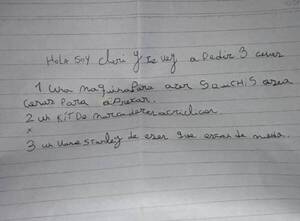 Hola soy cheri y te voy a Pedir 3 cosas
1 Una maquina Para aser SQUCHIS osea
cosas Para aPretar.
2 un KIT De marcadores acrilicos.
x
3 un vaso Stanley de eser que estas de moda.